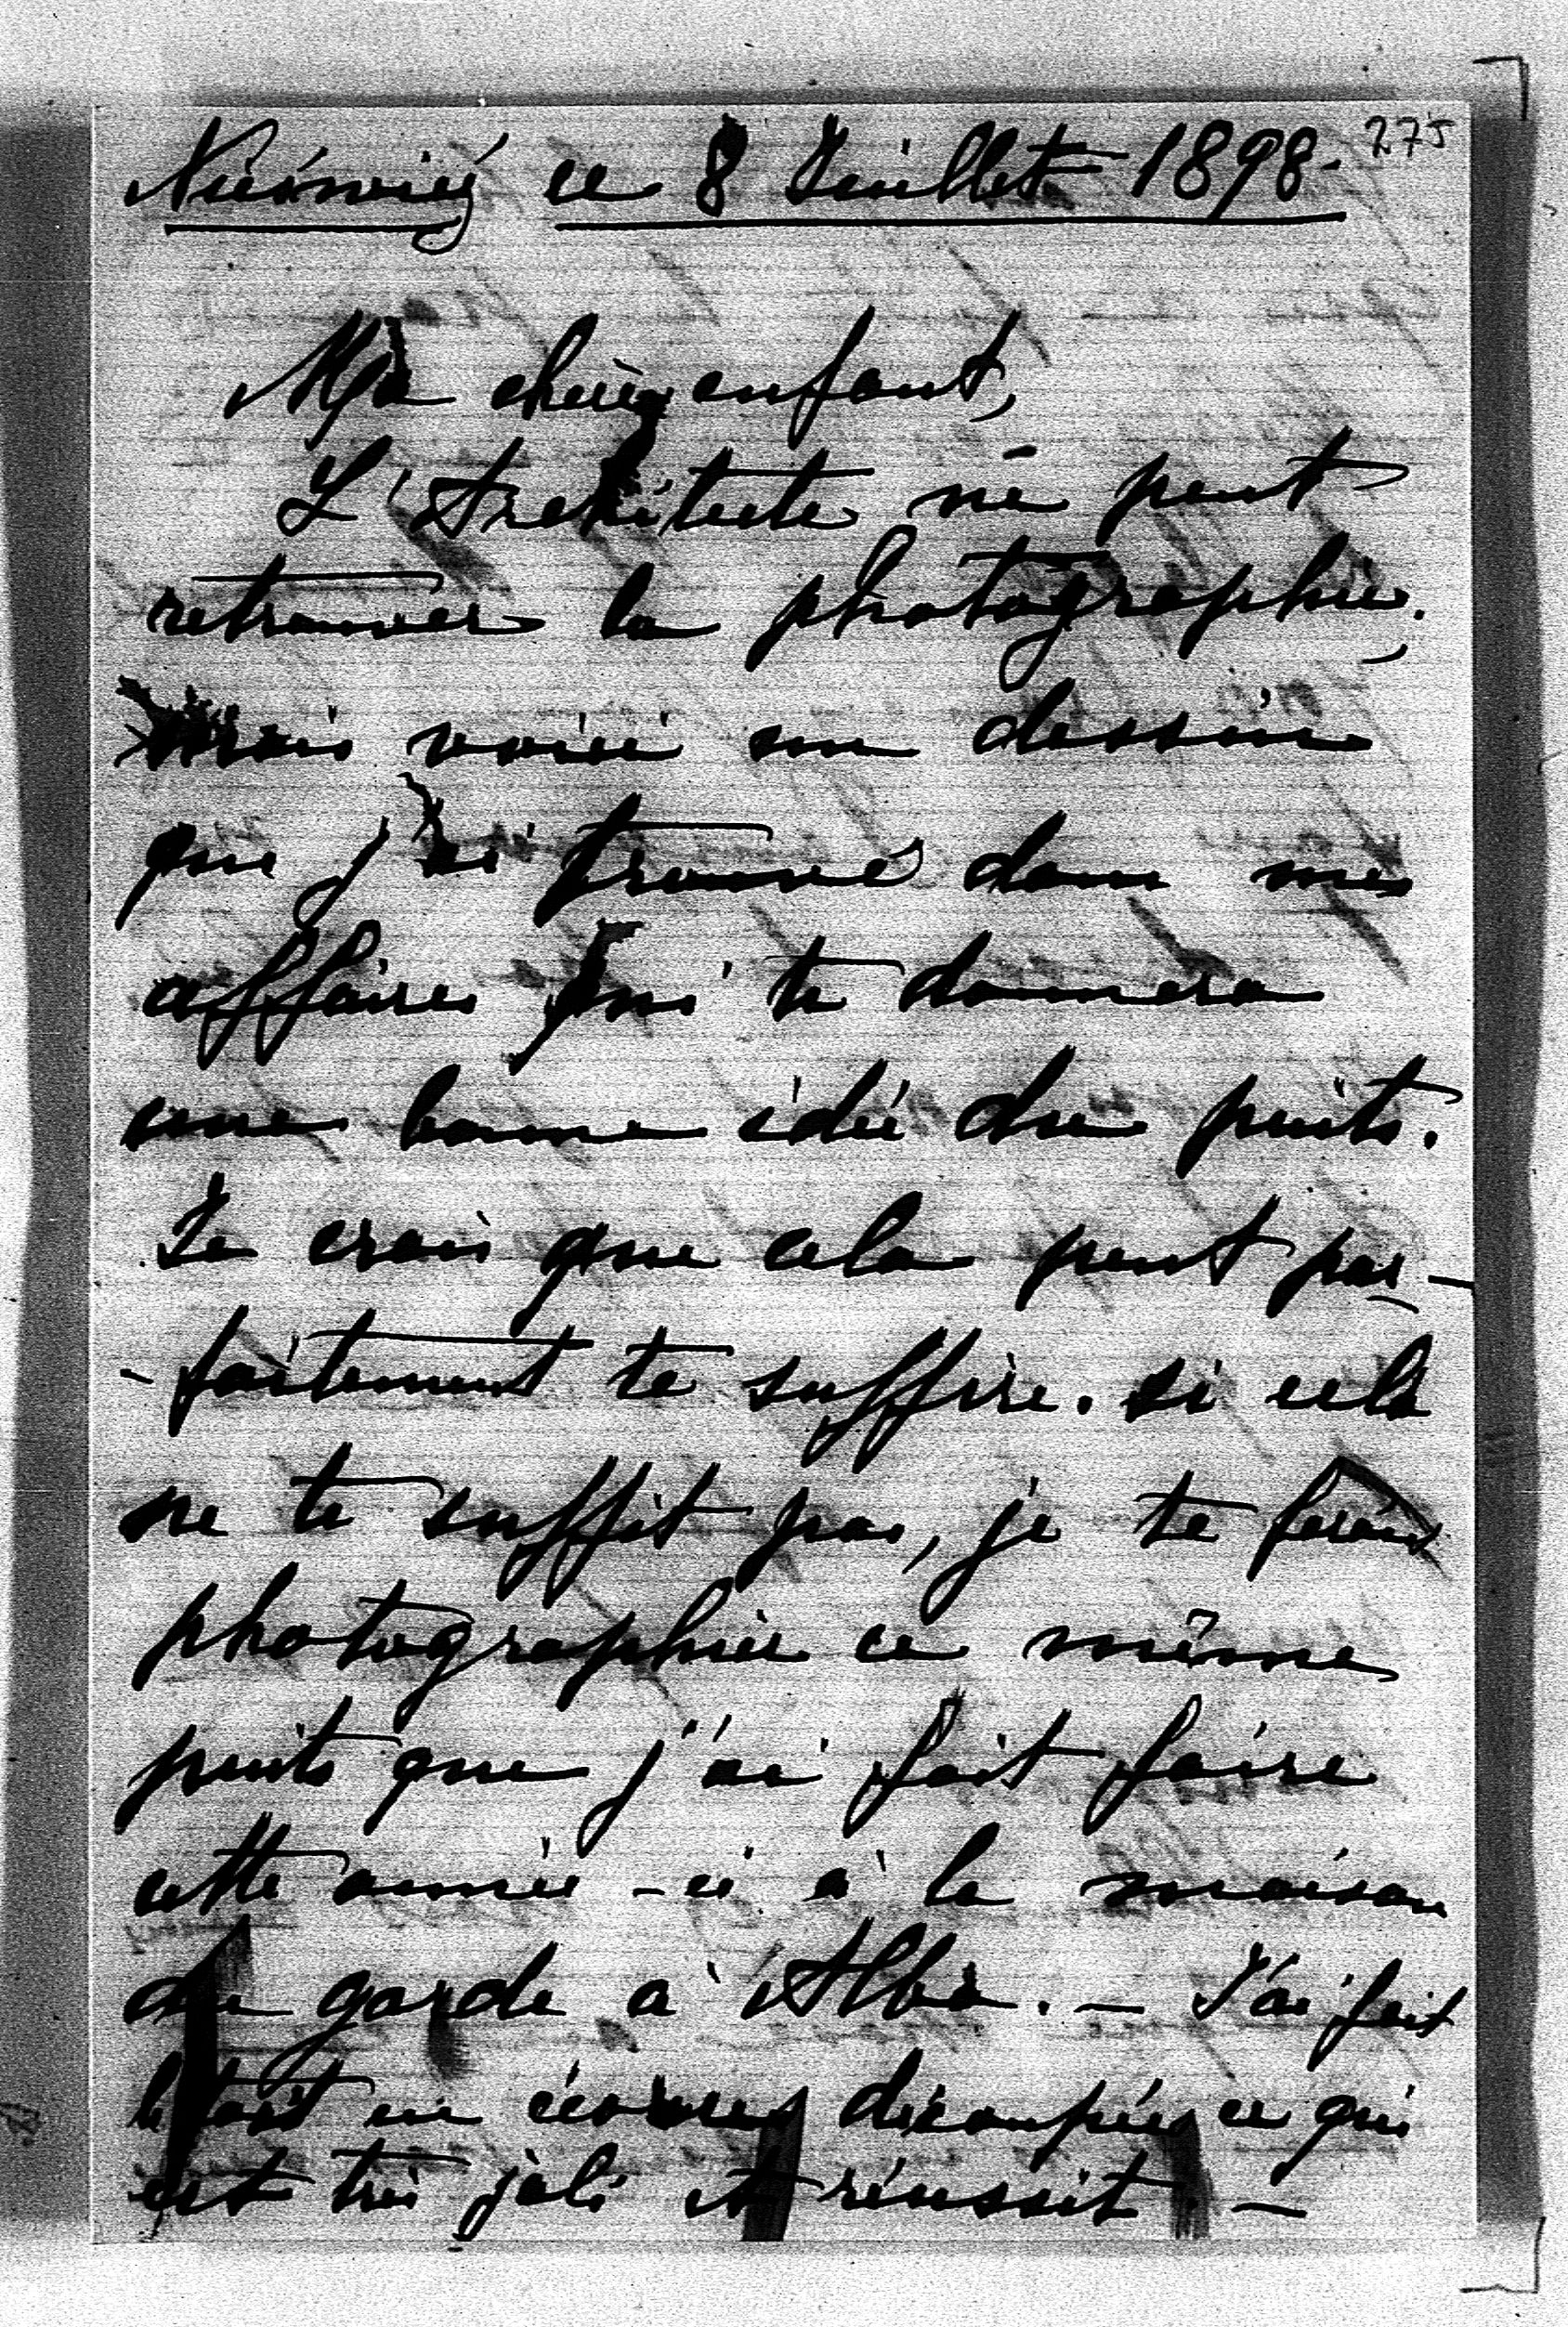 275
Nieśwież ce 8 Juillet 1898.
Ma chère enfant,
L'Architecte ne peut
retrouver la photographie,
mais voici un dessin
que j'ai trouvé dans mes
affaires qui te donnera
une bonne idée du puits.
Je crois que cela peut par-
-faitement te suffire. si cela
ne te suffit pas, je te ferais
photographier ce même
puits que j'ai fait faire
cette année-ci à la maison
de garde à Alba. — J'ai fait
le toit en écorces découpées ce qui
est très joli et réussit. —